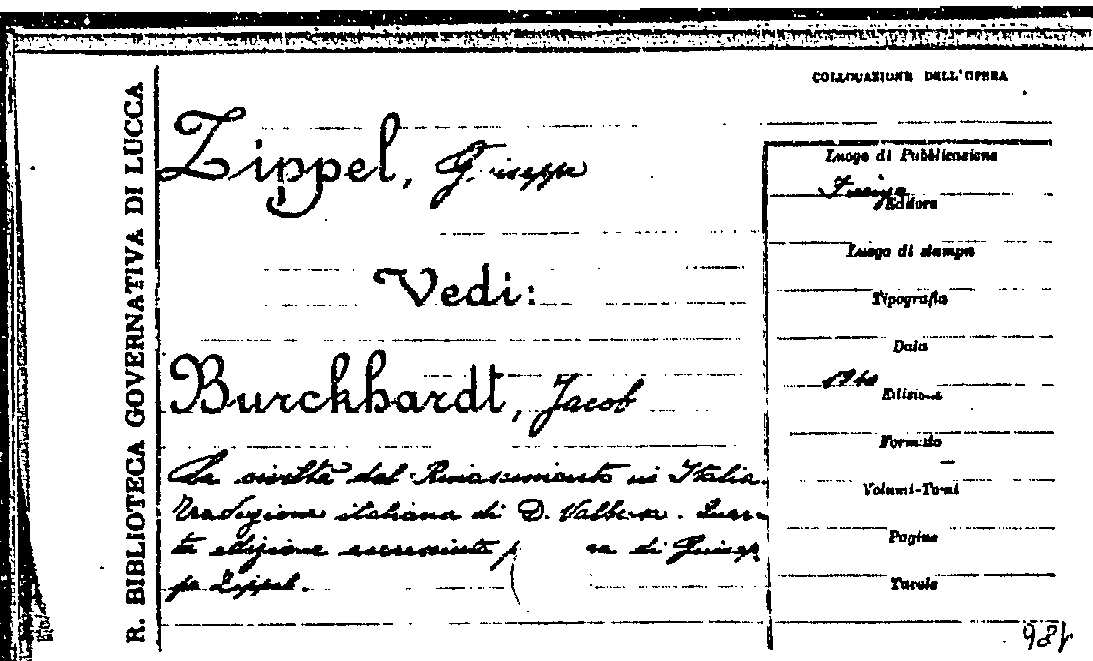 R. BIBLIOTECA GOVERNATIVA DI LUCCA
COLLOCAZIONE DELL'OPERA
Zippel, Giuseppe
Vedi:
Burckhardt, Jacob
La civiltà del Rinascimento in Italia.
Traduzione italiana di D. Valbusa.
ta edizione accresciuta di Giusep
pe Zippel.
Luogo di Pubblicazione
Firenze
Editore
Luogo di stampa
Tipografia
Data
Edizione
Formato
Volumi-Tomi
Pagine
Tavole